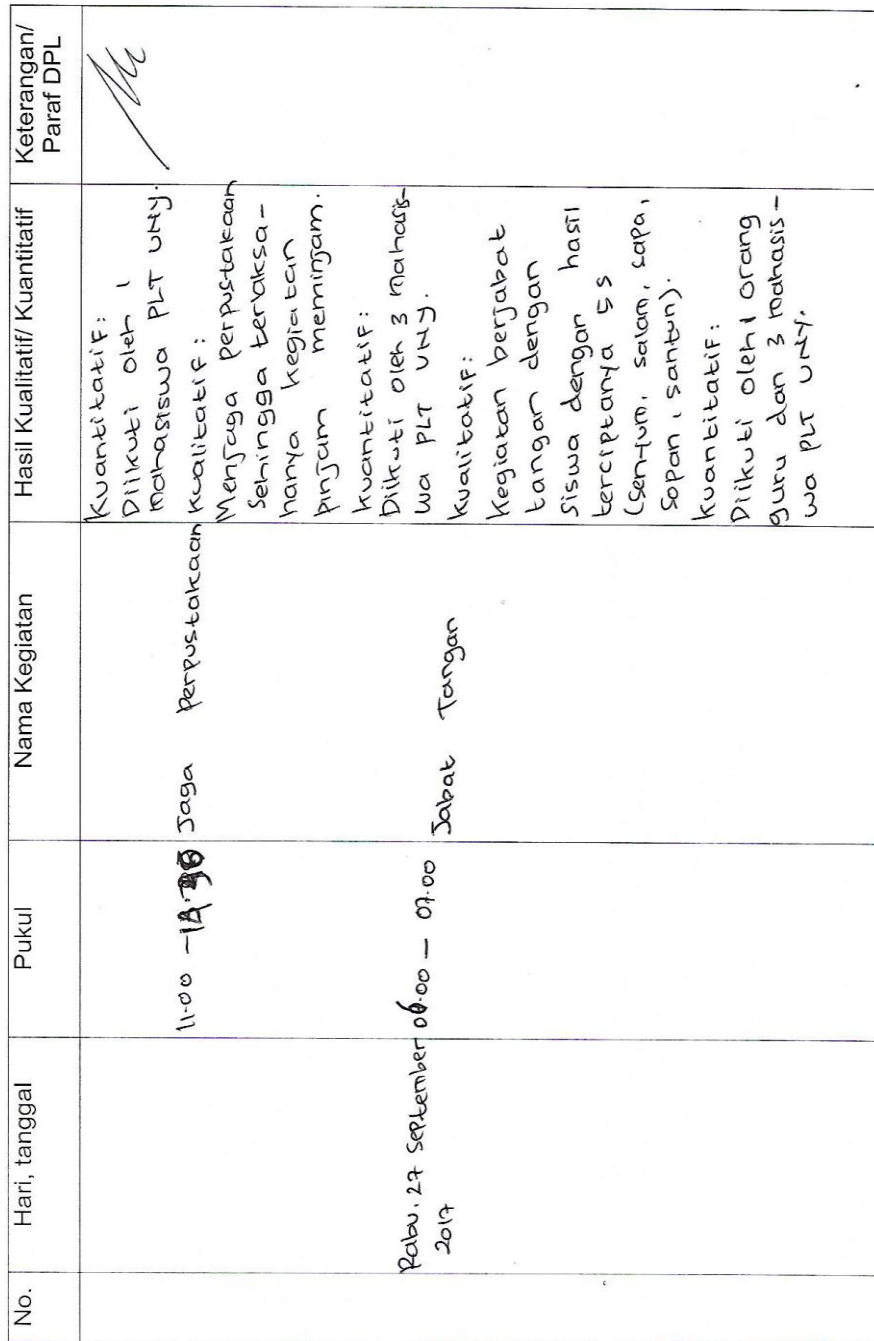 No.
Hari, tanggal
Pukul
Nama Kegiatan
Hasil Kualitatif/ Kuantitatif
Keterangan/
Paraf DPL
Kuantitatif:
Diikuti oleh 1
mahasiswa PLT UNY.
11.00 -
Jaga Perpustakaan
kualitatif:
Menjaga perpustakaan
Sehingga terlaksa-
hanya kegiatan
pinjam meminjam.
kuantitatif:
Diikuti oleh 3 mahasis-
wa PLT UNY.
Rabu, 27 September
2017
06.00 - 07.00
Jabat Tangan
kualitatif:
Kegiatan berjabat
tangan dengan
siswa dengan hasil
terciptanya 5S
(senyum, salam, sapa,
sopan, santun).
kuantitatif:
Diikuti oleh 1 orang
guru dan 3 mahasis-
wa PLT UNY.